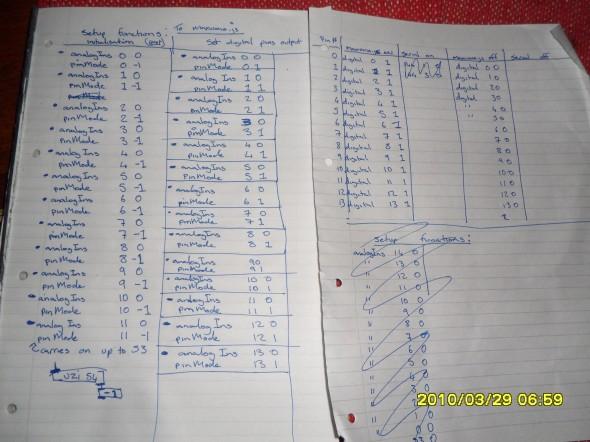 Setup functions:
initialisation
analogIns 0 0
pinMode 0 -1
analogIns 1 0
pinMode 1 -1
analogIns 2 0
pinMode 2 -1
analogIns 3 0
pinMode 3 -1
analogIns 4 0
pinMode 4 -1
analogIns 5 0
pinMode 5 -1
analogIns 6 0
pinMode 6 -1
analogIns 7 0
pinMode 7 -1
analogIns 8 0
pinMode 8 -1
analogIns 9 0
pinMode 9 -1
analogIns 10 0
pinMode 10 -1
analog Ins 11 0
pinMode 11 -1
carries on up to 53
-1
Set digital pins output
analogIns 0 0
pinMode 0 1
analogIns 1 0
pinMode 1 1
analogIns 2 0
pinMode 2 1
analogIns 3 0
pinMode 3 1
analogIns 4 0
pinMode 4 1
analogIns 5 0
pinMode 5 1
analogIns 6 0
pinMode 6 1
analogIns 7 0
pinMode 7 1
analogIns 8 0
pinMode 8 1
analogIns 9 0
pinMode 9 1
analogIns 10 0
pinMode 10 1
analogIns 11 0
pinMode 11 1
analog Ins 12 0
pinMode 12 1
analog Ins 13 0
pinMode 13 1
Pin #
0 digital 0 1 digital 0 0
1 digital 1 1 digital 1 0
2 digital 2 1 digital 2 0
3 digital 3 1 digital 3 0
4 digital 4 1 " 4 0
5 digital 5 1 " 5 0
6 digital 6 1 6 0
7 digital 7 1 7 0
8 digital 8 1 8 0
9 digital 9 1 9 0
10 digital 10 1 10 0
11 digital 11 1 11 0
12 digital 12 1 12 0
13 digital 13 1 13 0
Setup functions:
analogIns 14 0
" 13 0
" 12 0
" 11 0
" 10 0
" 9 0
" 8 0
" 7 0
" 6 0
" 5 0
" 4 0
" 3 0
2010/03/29 06:59